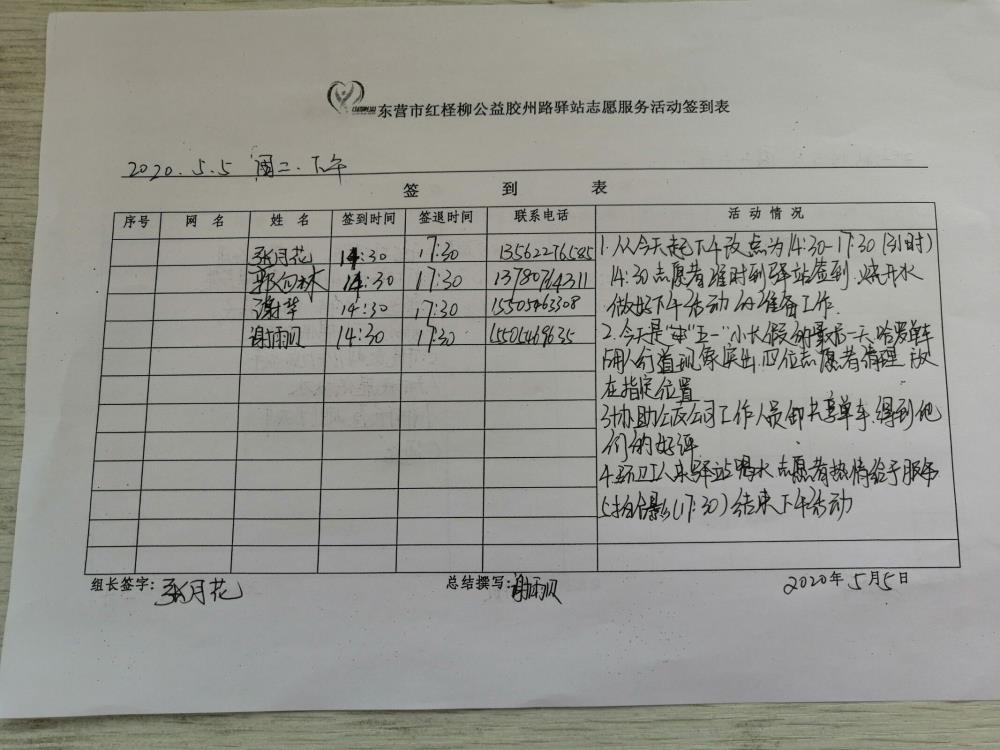 东营市红柽柳公益胶州路驿站志愿服务活动签到表
2020.5.5 周二.下午
签到表
序号 网名 姓名 签到时间 签退时间 联系电话 活动情况
张月花 14:30 17:30 13562276585
郭向林 14:30 17:30 13780764311
谢华 14:30 17:30 15505463308
谢雨贝 14:30 17:30 15505469635
1.从今天起下午改点为14:30-17:30(3小时)
14:30志愿者准时到驿站签到.烧开水
做好下午活动的准备工作.
2.今天是"五一"小长假的最后一天.哈罗单车
占用人行道现象突出.四位志愿者清理.放
在指定位置
3协助公司工作人员卸共享单车.得到他
们的好评
4.环卫工人来驿站喝水.志愿者热情给予服务
5拍合影(17:30)结束下午活动
组长签字:张月花 总结撰写:谢雨贝 2020年5月5日